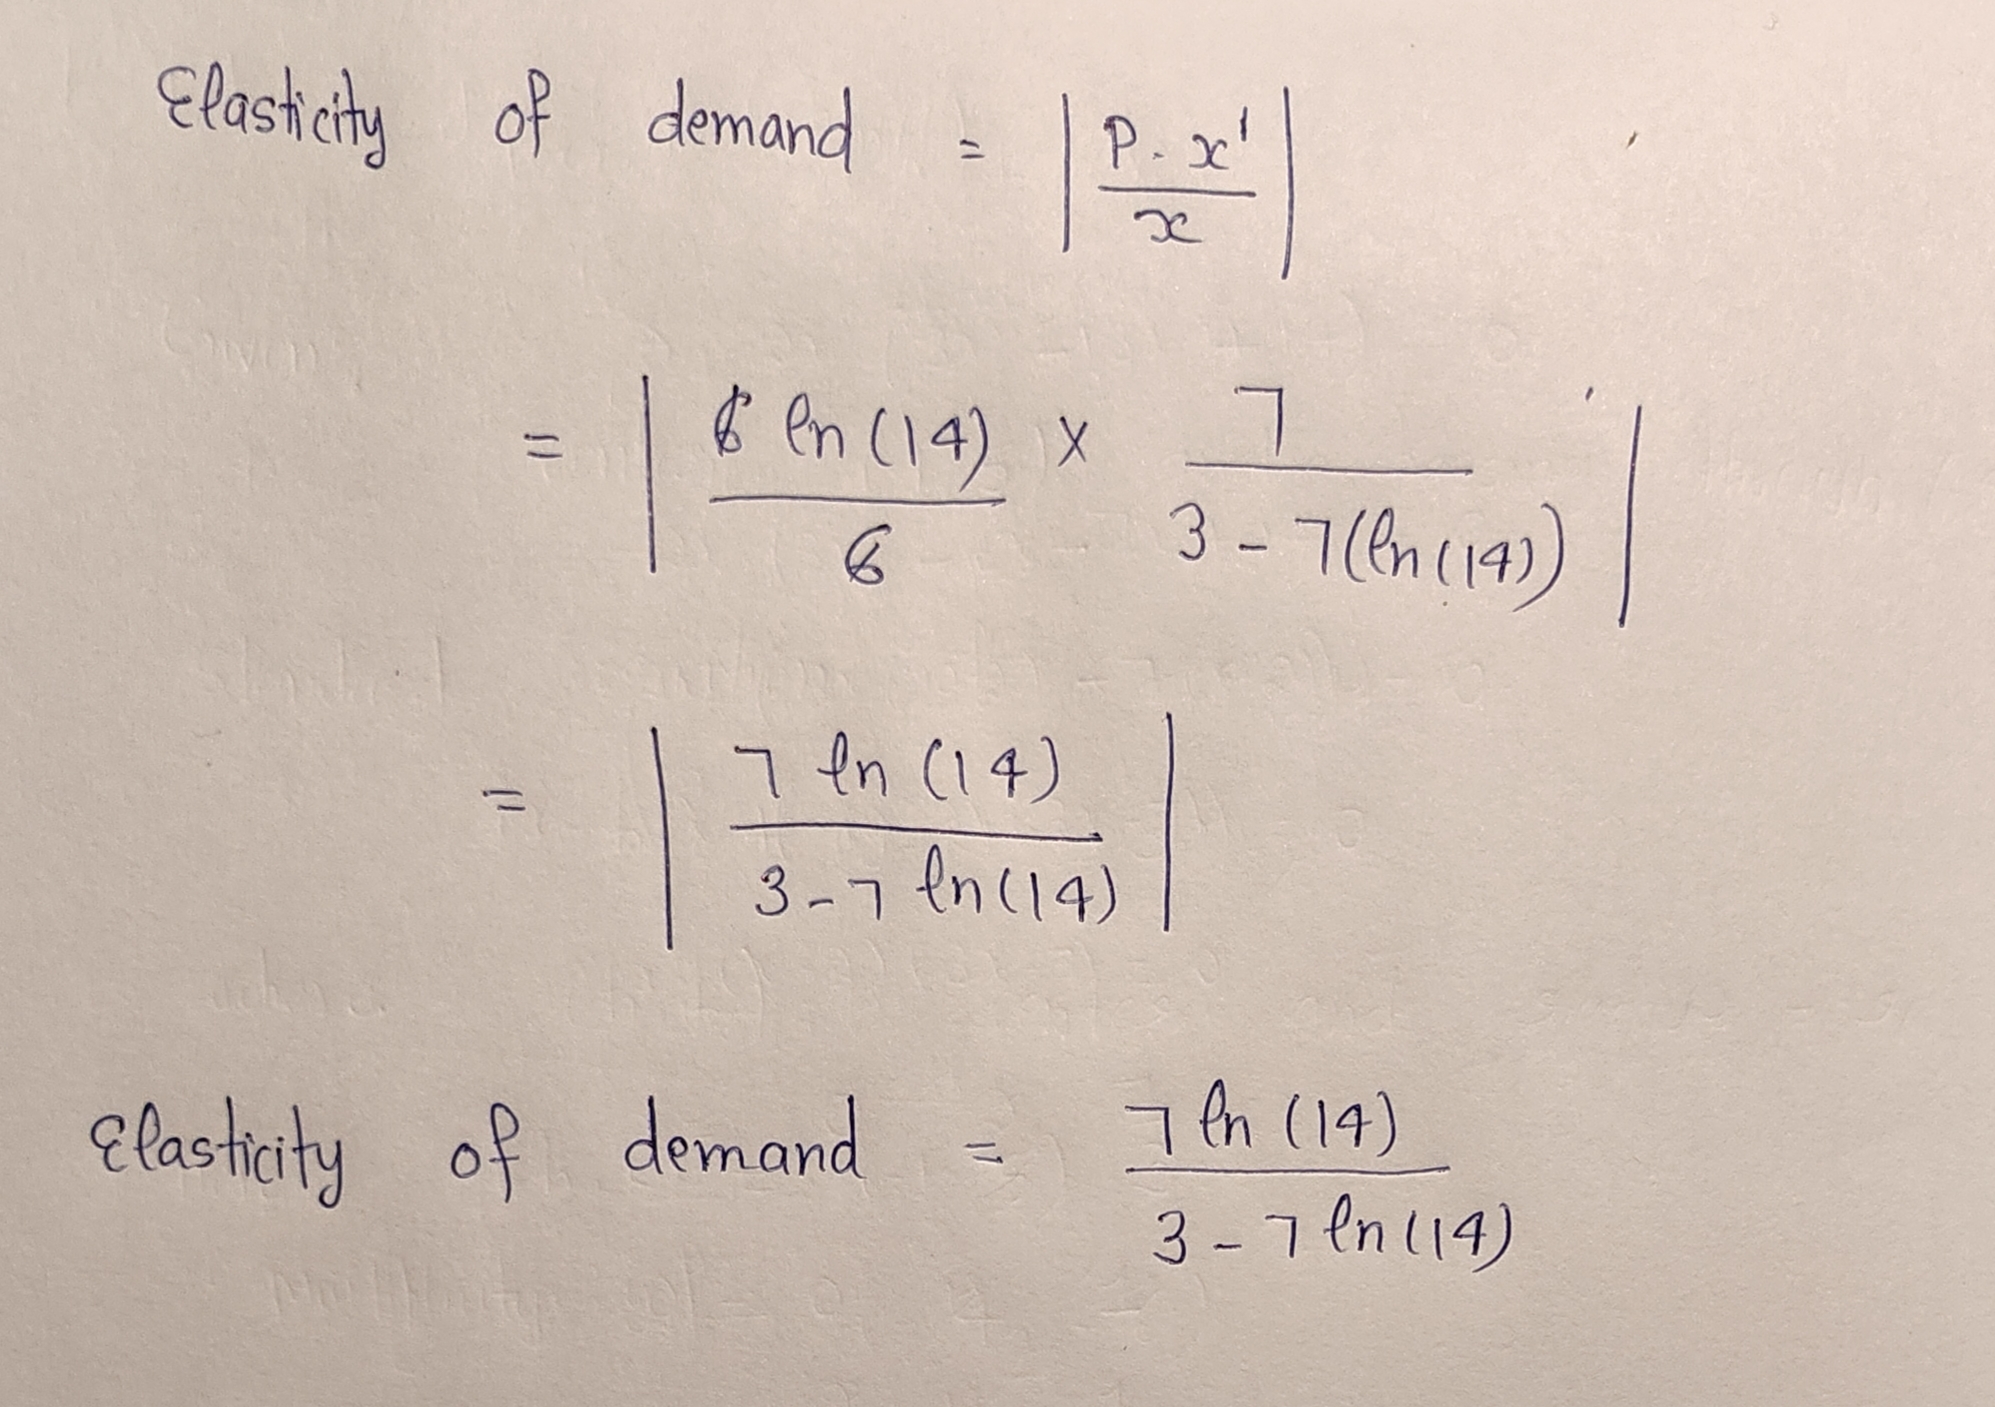 Elasticity of demand = | P. x' / x |
= | 6 ln (14) / 6 × 7 / 3 - 7(ln(14)) |
= | 7 ln (14) / 3 - 7 ln(14) |
Elasticity of demand = 7 ln (14) / 3 - 7 ln(14)